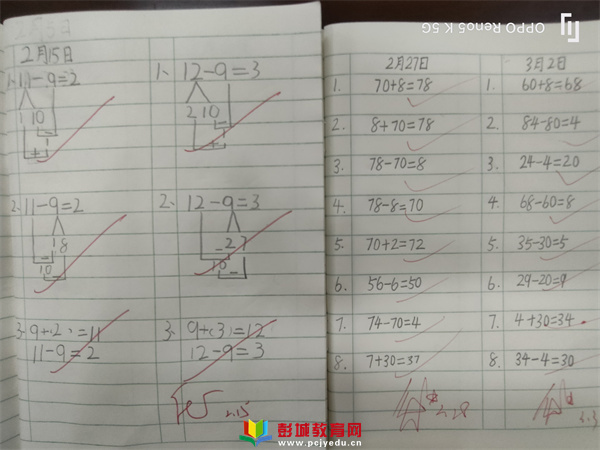 OPPO Reno5 K 5G
2月15日
1、11-9=2
1 10
-
+ 1
2、11-9=2
1 8
-
10
-
3、9+(2)=11
11-9=2
1、12-9=3
2 10
-
+ 1
2、12-9=3
2 7
-
10
-
3、9+(3)=12
12-9=3
2.15
2月27日
1. 70+8=78
2. 8+70=78
3. 78-70=8
4. 78-8=70
5. 70+2=72
6. 56-6=50
7. 74-70=4
8. 7+30=37
2.28
3月2日
1. 60+8=68
2. 84-80=4
3. 24-4=20
4. 68-60=8
5. 35-30=5
6. 29-20=9
7. 4+30=34
8. 34-4=30
3.3
彭城教育网
www.pcjyedu.cn